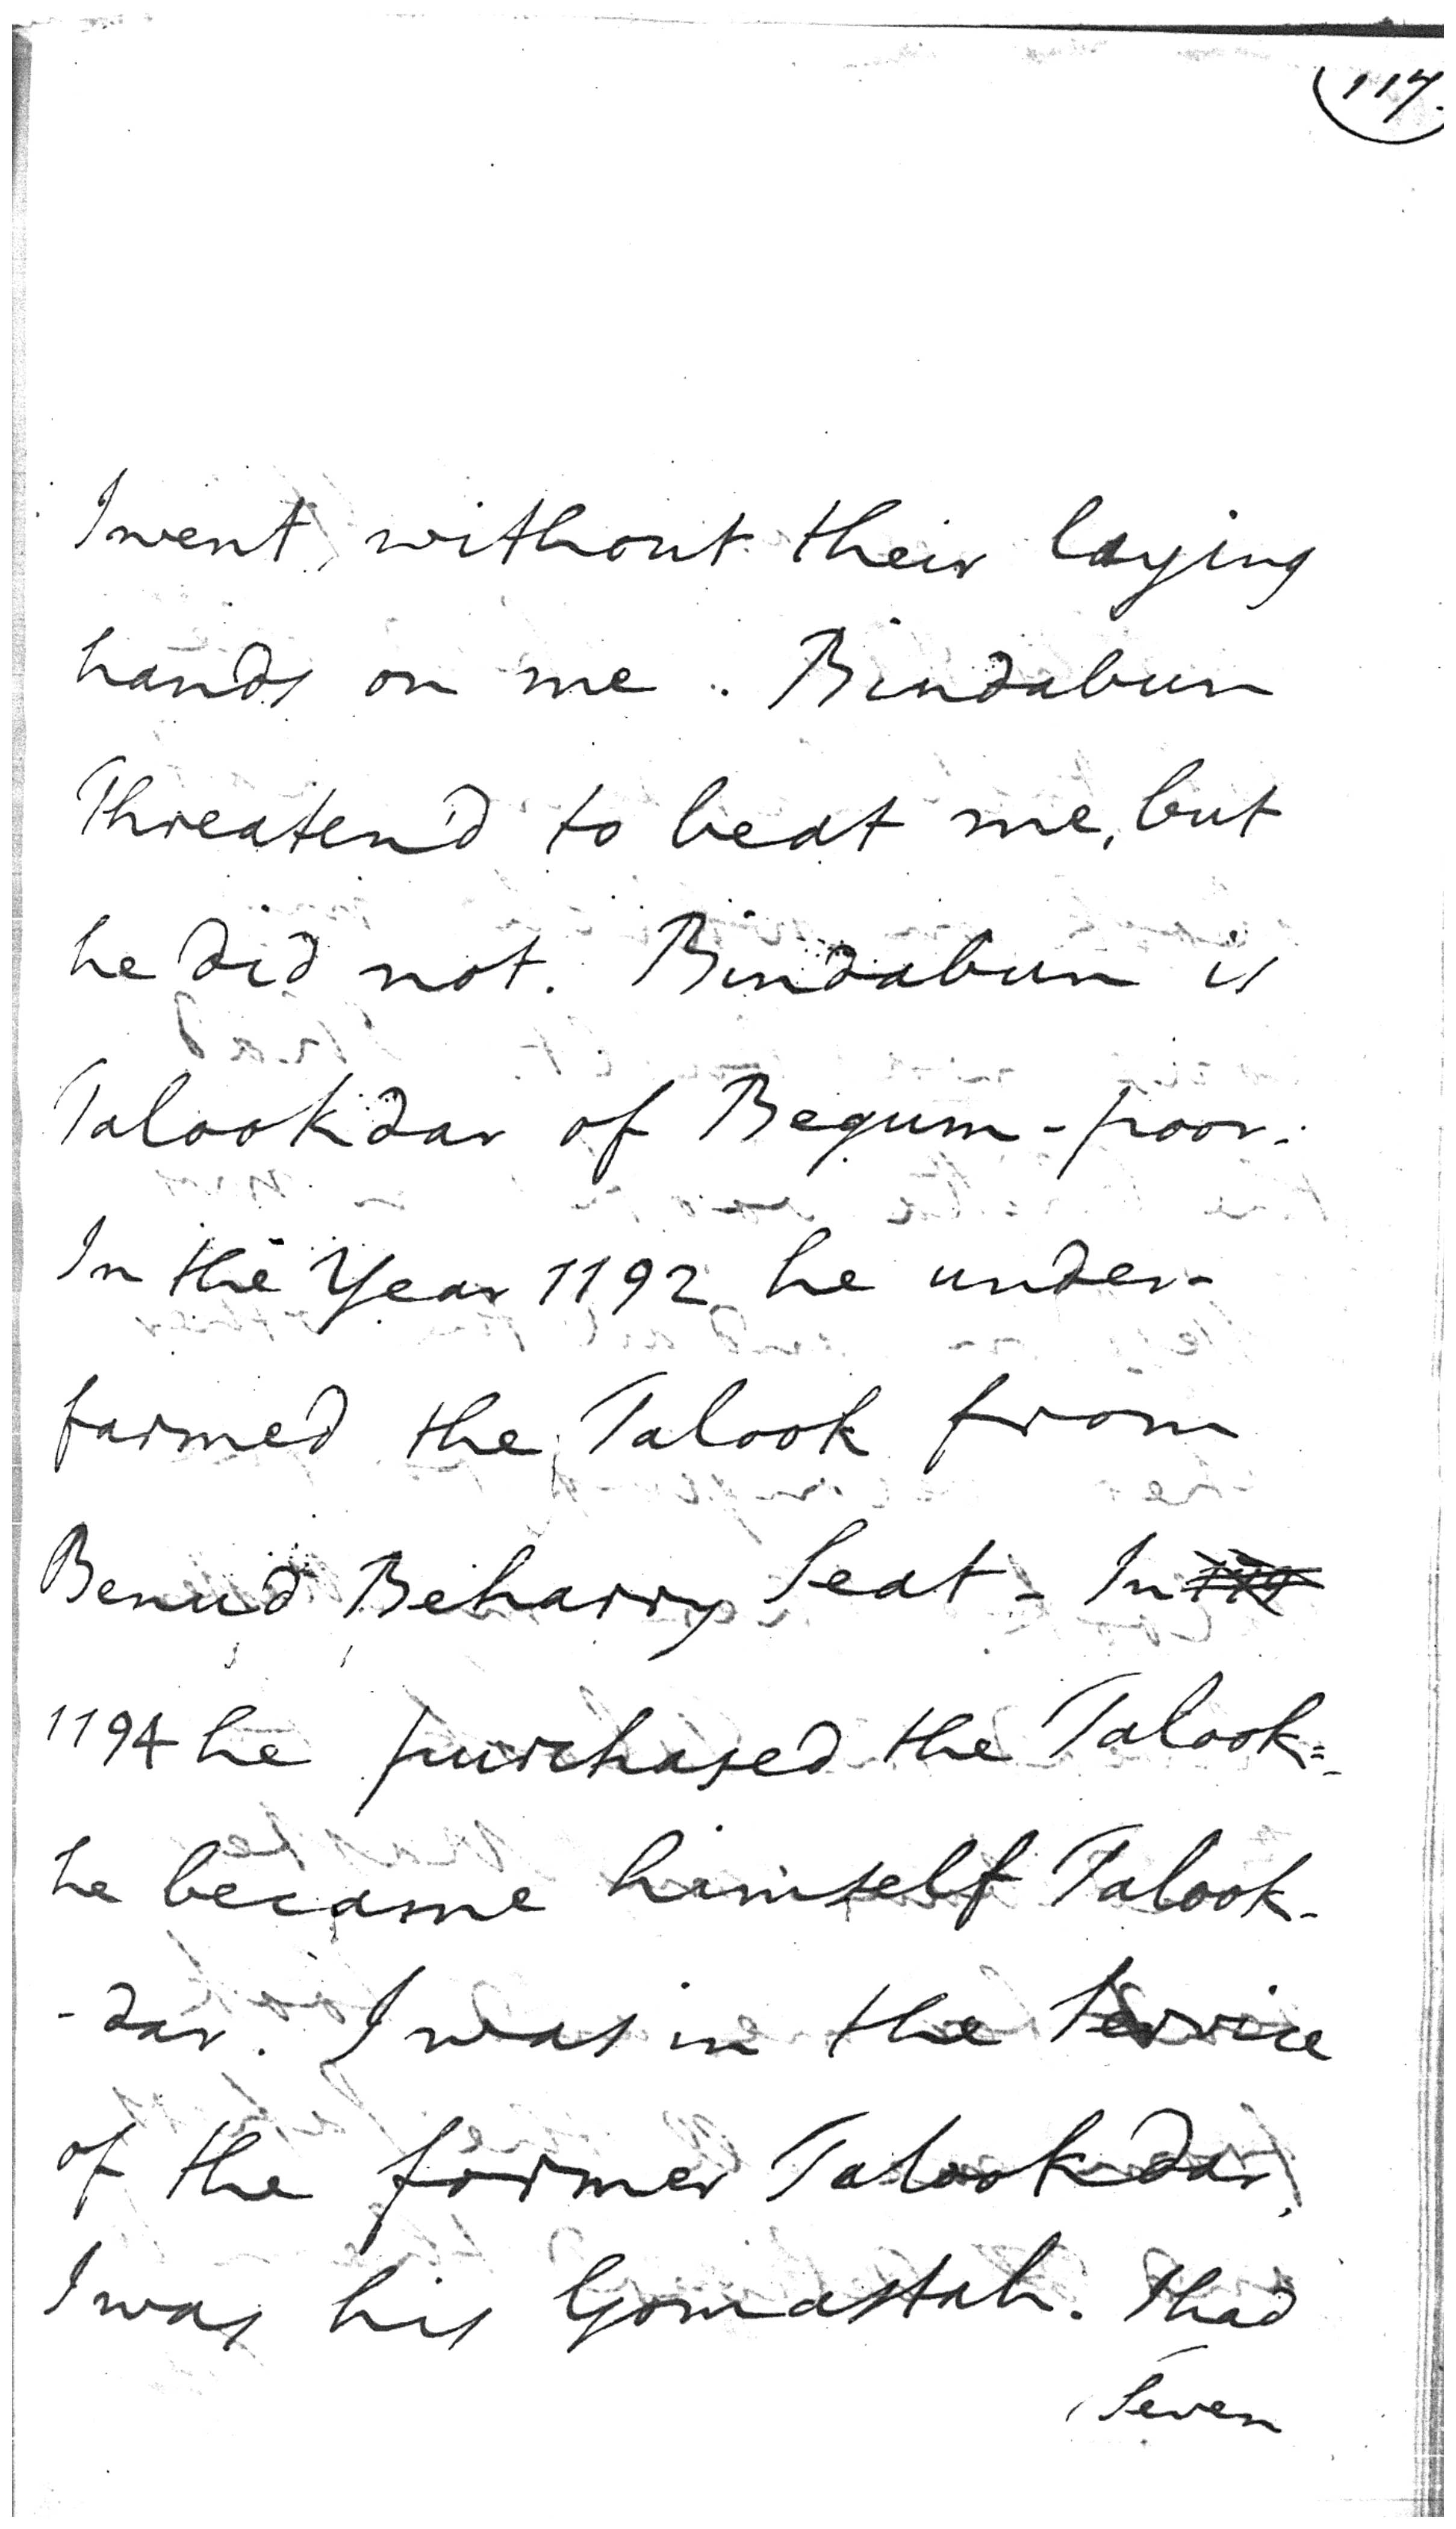 117.
I went without their laying
hands on me. Bindabun
Threaten'd to beat me, but
he did not. Bindabun is
Talookdar of Begum-poor.
In the Year 1192 he under-
farmed the Talook from
Benud Beharry Seat - In
1194 he purchased the Talook=
he became himself Talook-
-dar. I was in the Service
of the former Talookdar,
I was his Gomastah. I had
Seven